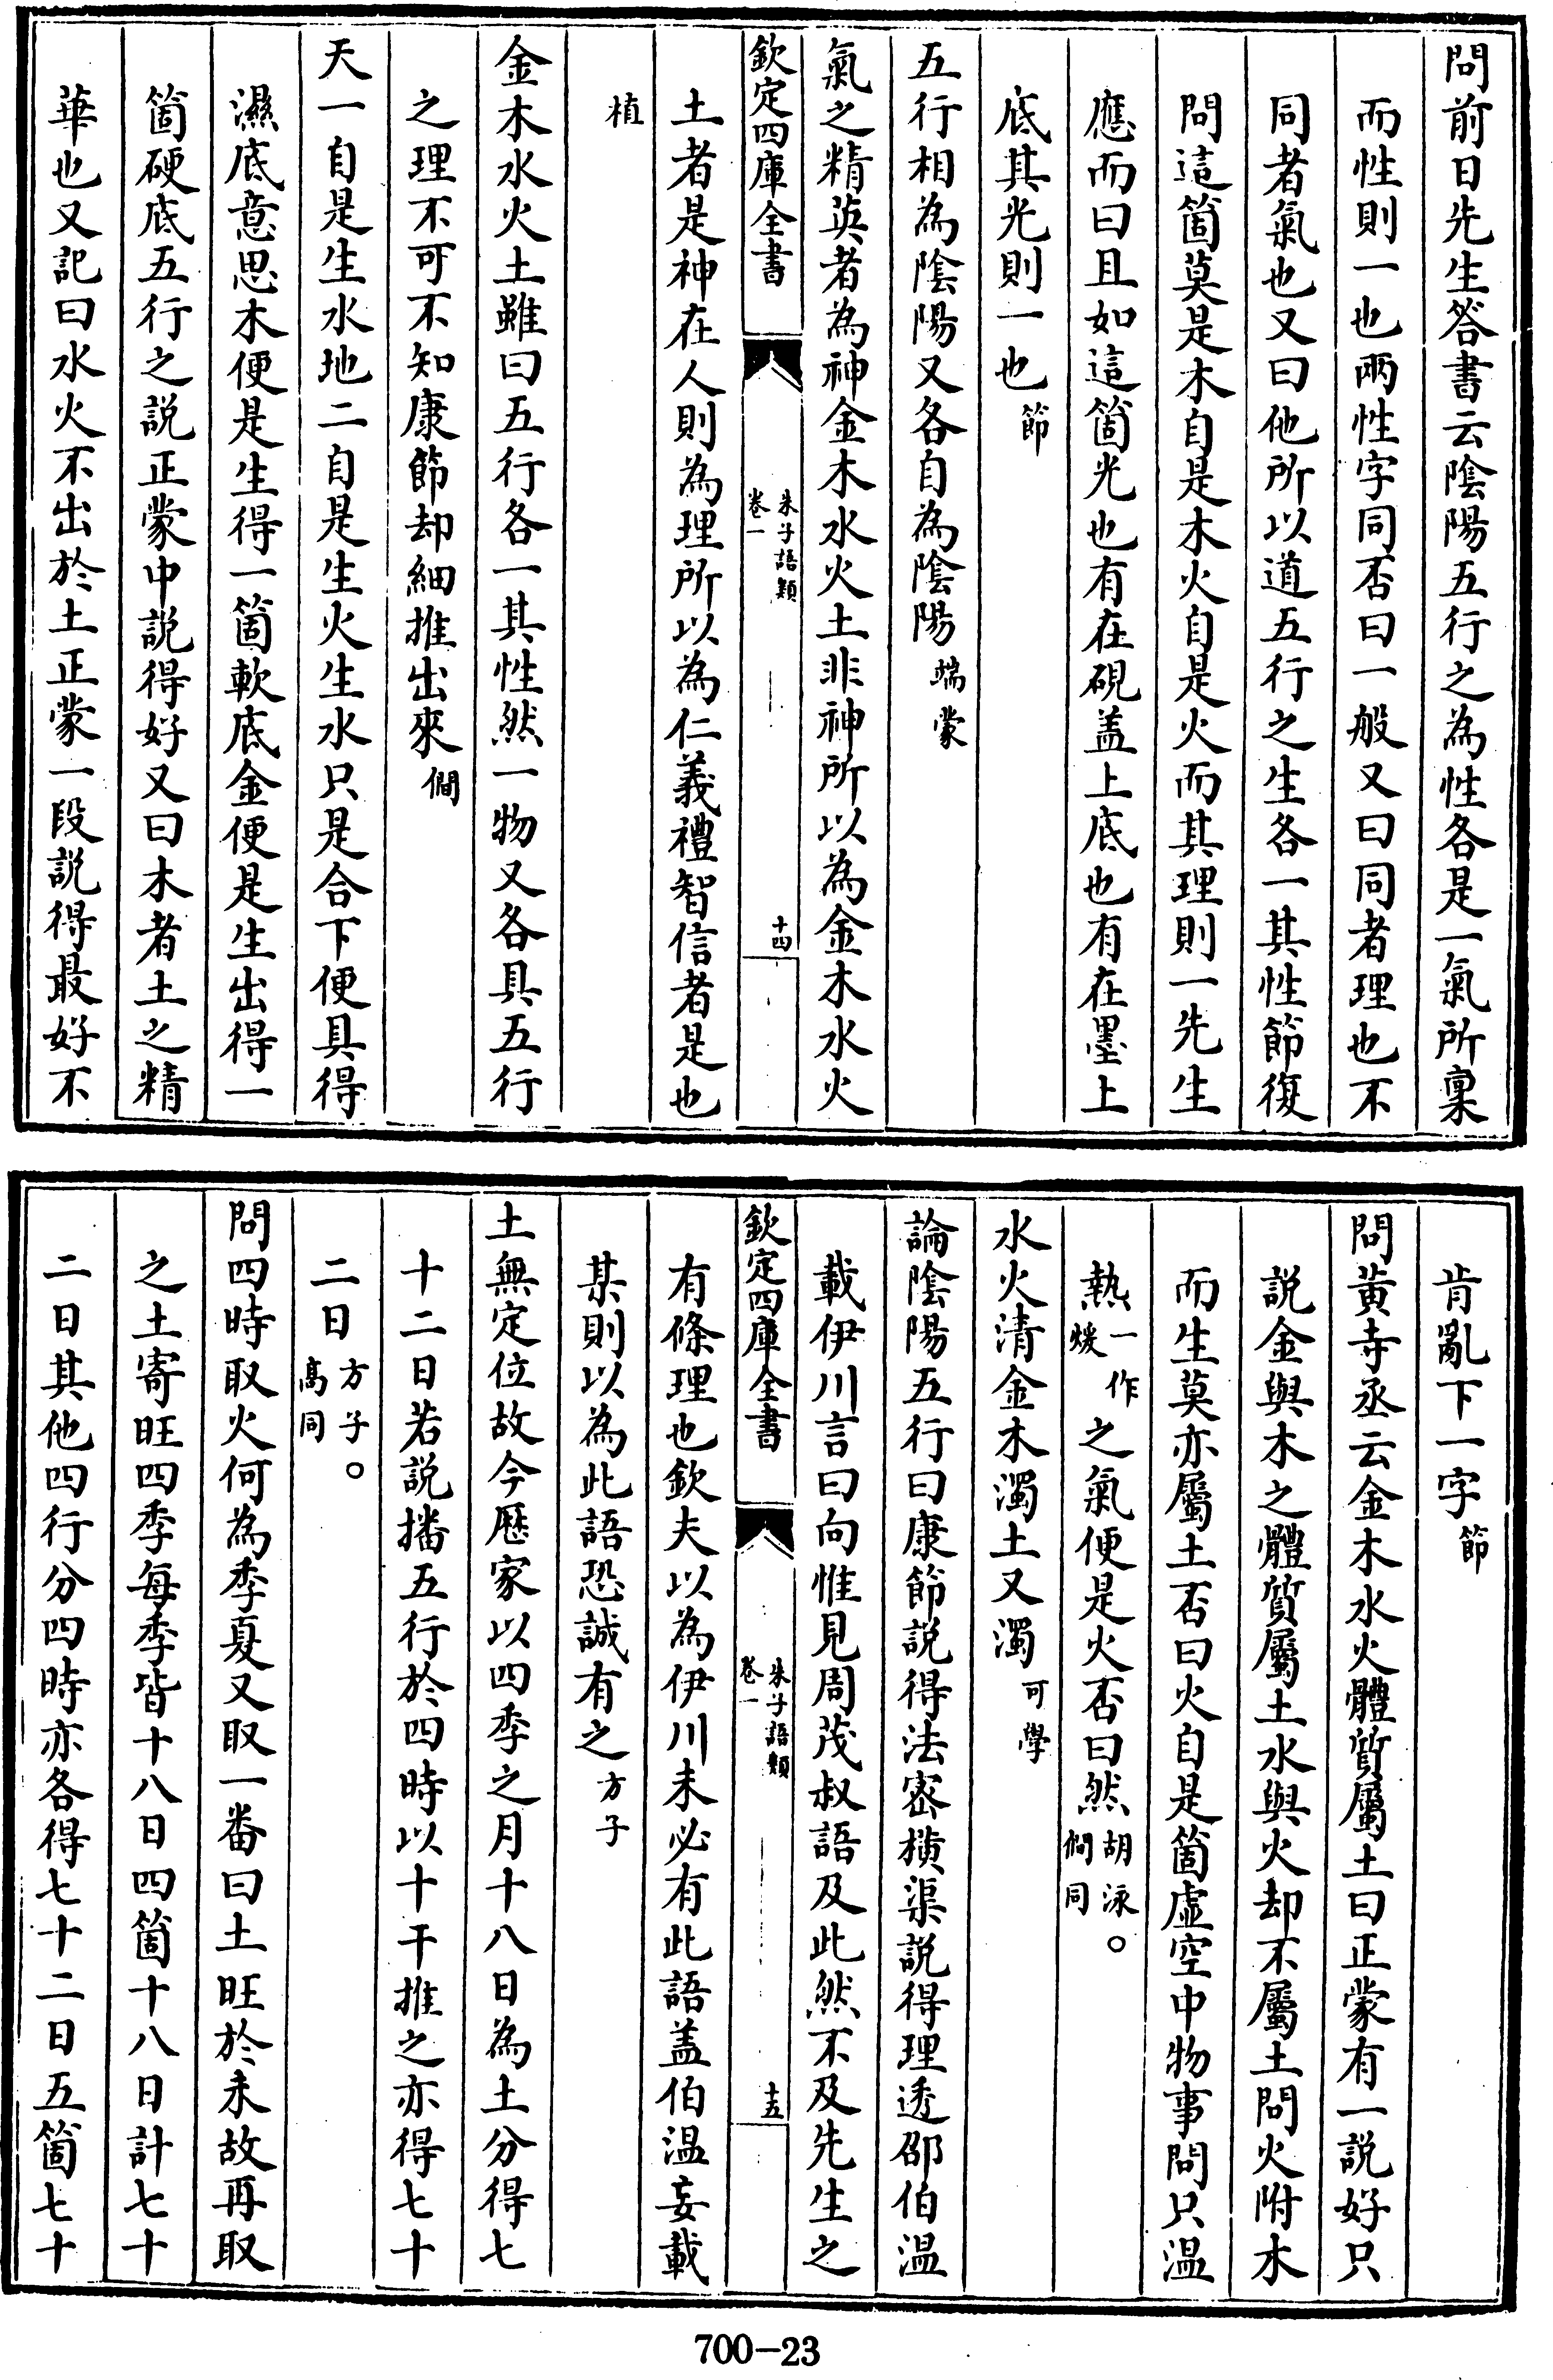 問前日先生答書云陰陽五行之為性各是一氣所稟
而性則一也兩性字同否曰一般又曰同者理也不
同者氣也又曰他所以道五行之生各一其性節復
問這箇莫是木自是木火自是火而其理則一先生
應而曰且如這箇光也有在硯盖上底也有在墨上
底其光則一也節
五行相為陰陽又各自為陰陽端蒙
氣之精英者為神金木水火土非神所以為金木水火
欽定四庫全書
朱子語類
卷一
十四
土者是神在人則為理所以為仁義禮智信者是也
植
金木水火土雖曰五行各一其性然一物又各具五行
之理不可不知康節却細推出來僩
天一自是生水地二自是生火生水只是合下便具得
濕底意思木便是生得一箇軟底金便是生出得一
箇硬底五行之説正蒙中説得好又曰木者土之精
華也又記曰水火不出於土正蒙一段説得最好不
肯亂下一字節
問黄寺丞云金木水火體質屬土曰正蒙有一説好只
説金與木之體質屬土水與火却不屬土問火附木
而生莫亦屬土否曰火自是箇虚空中物事問只温
熱一作煖之氣便是火否曰然胡泳僩同○
水火清金木濁土又濁可學
論陰陽五行曰康節説得法密横渠説得理透邵伯温
載伊川言曰向惟見周茂叔語及此然不及先生之
欽定四庫全書
朱子語類
卷一
十五
有條理也欽夫以為伊川未必有此語盖伯温妄載
某則以為此語恐誠有之方子
土無定位故今厯家以四季之月十八日為土分得七
十二日若説播五行於四時以十干推之亦得七十
二日方子高同○
問四時取火何為季夏又取一番曰土旺於未故再取
之土寄旺四季每季皆十八日四箇十八日計七十
二日其他四行分四時亦各得七十二日五箇七十
700-23